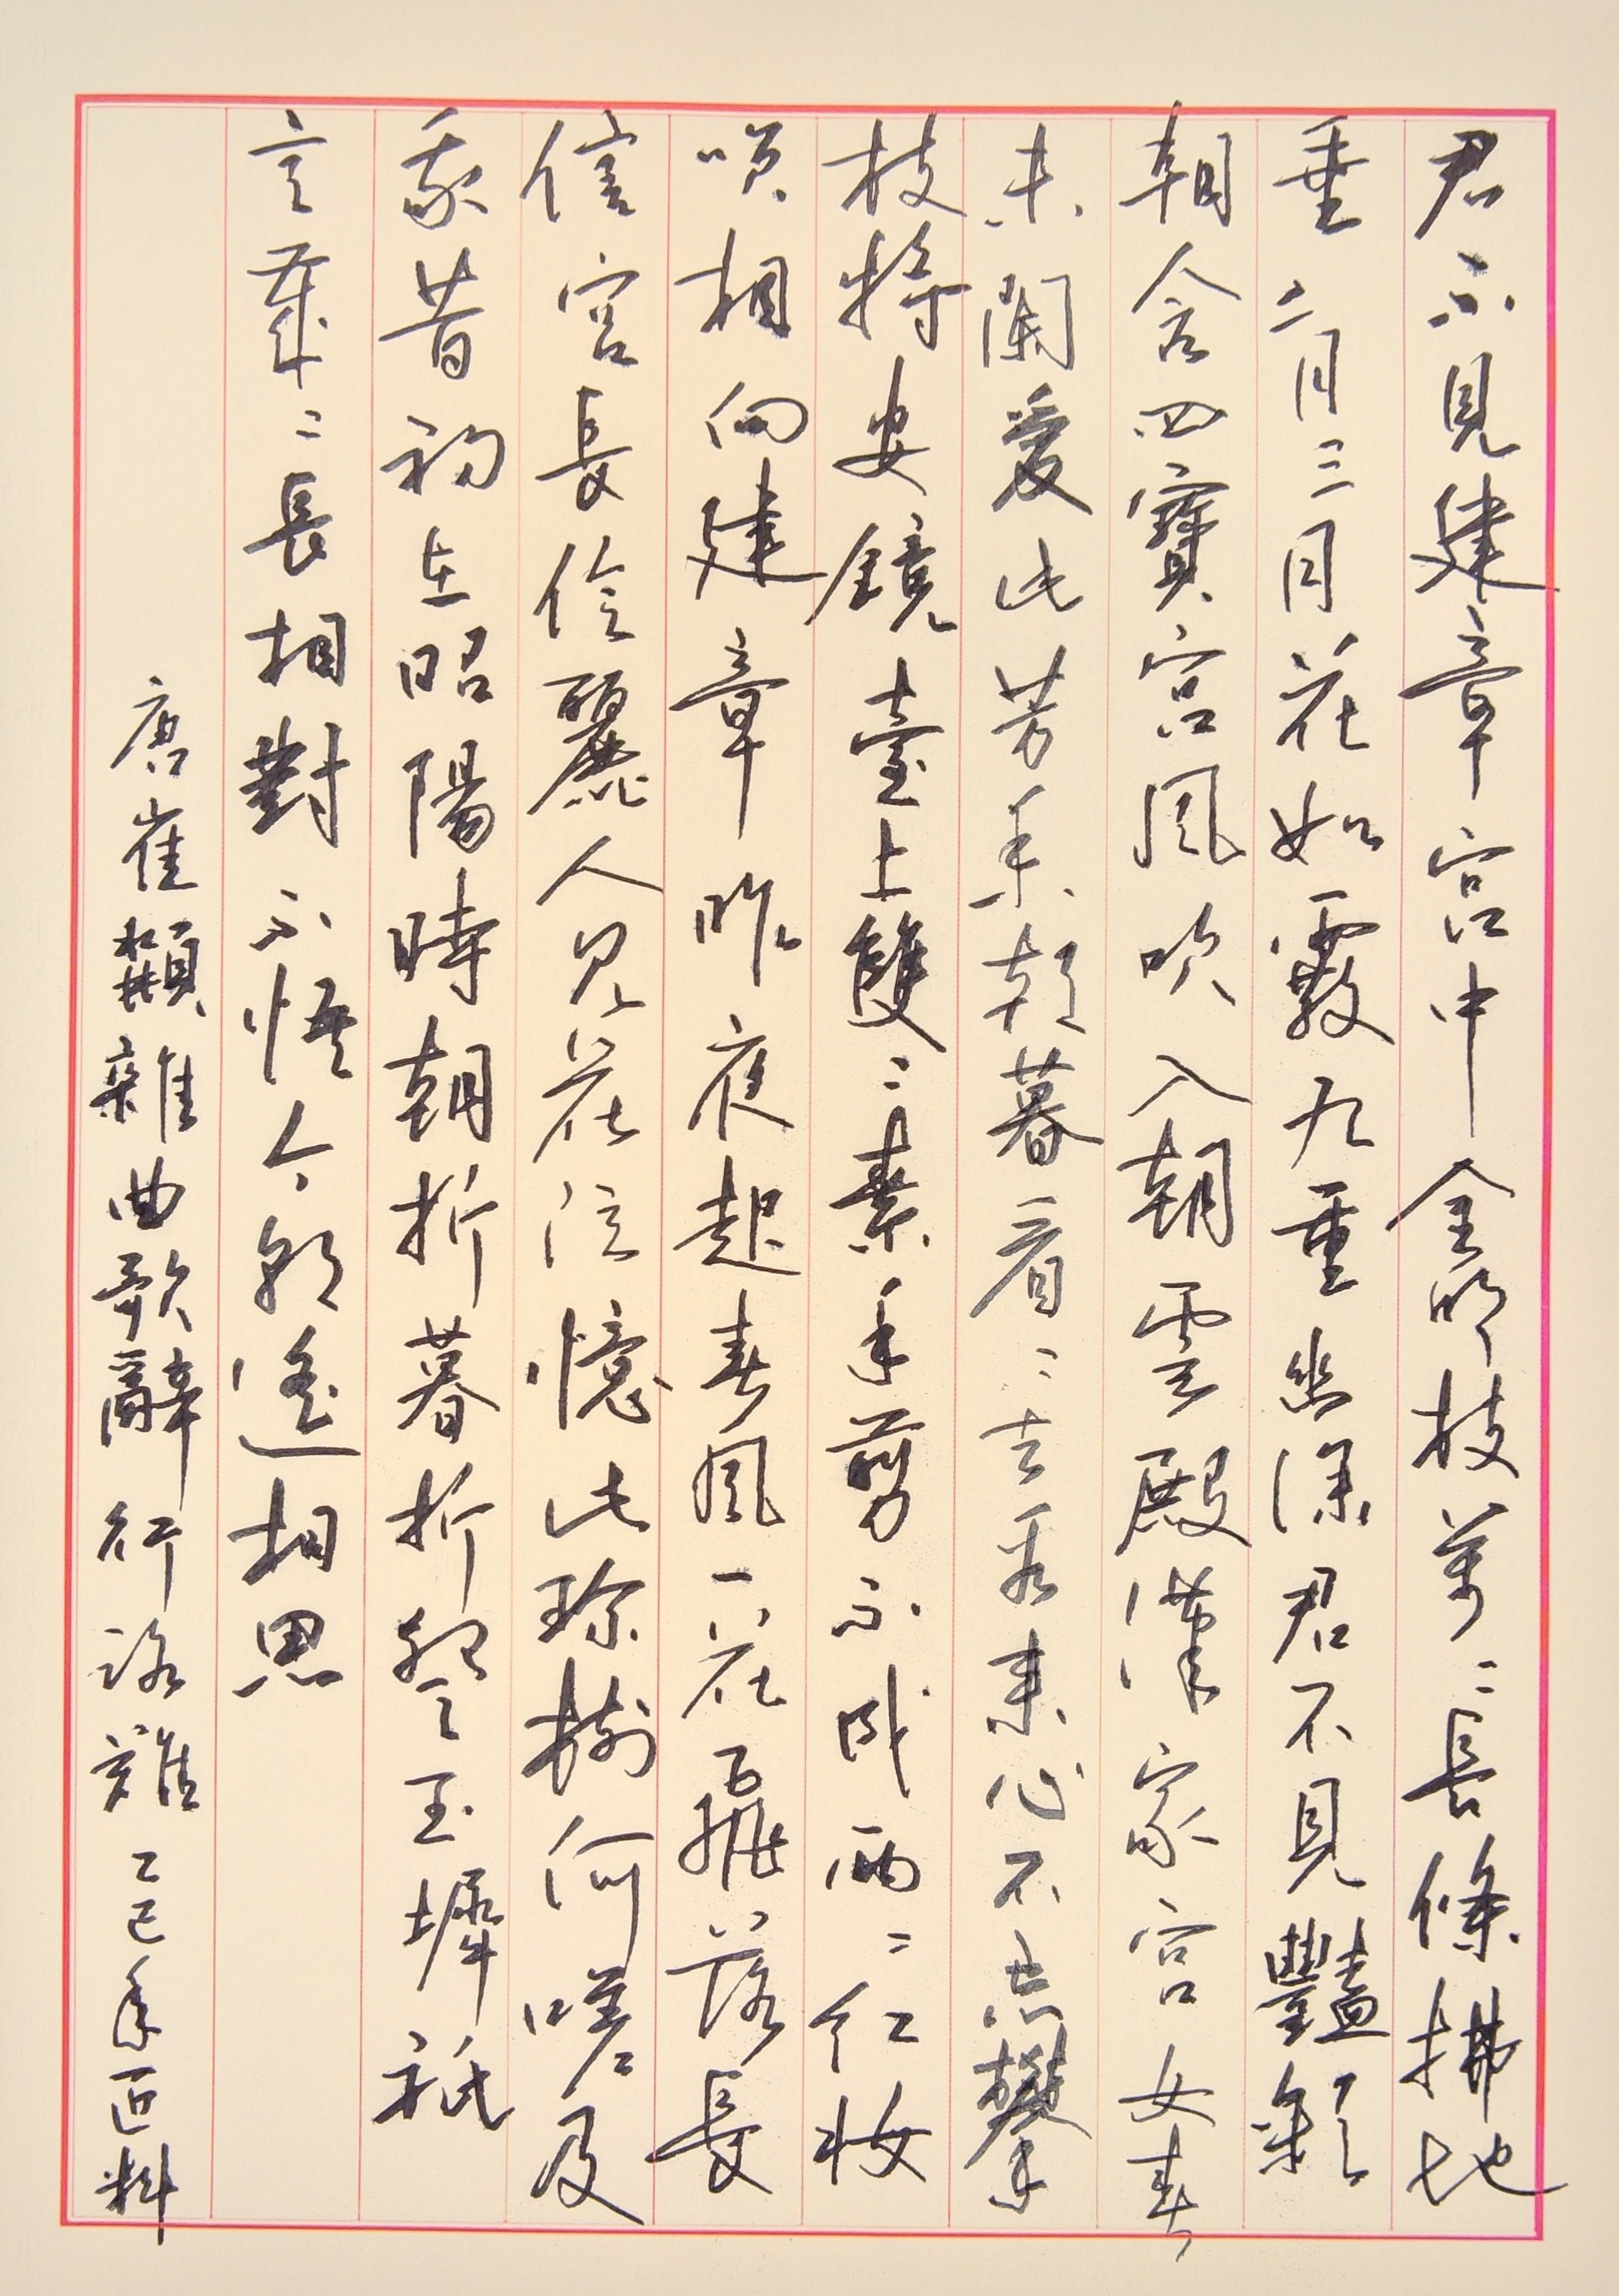 君不見建章宮中金明枝萬〻長條拂地
垂二月三月花如霰九重幽深君不見豔彩
朝含四寶宮風吹入朝雲殿漢家宮女春
未闌愛此芳香朝暮看〻去看來心不忘攀
枝將安鏡臺上雙〻素手剪不成兩〻紅妝
笑相向建章昨夜起春風一花飛落長
信宮長信麗人見花泣憶此珍樹何嗟及
我昔初在昭陽時朝折暮折登玉墀祗
言歲〻長相對不悟今朝遙相思
唐崔顥雜曲歌辭行路難 乙巳年